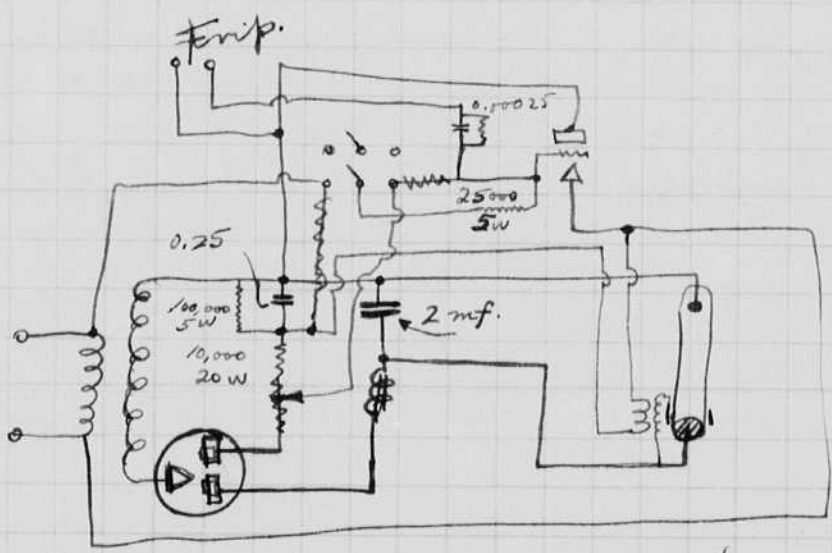 0.00025
25000
5W
0.25
100,000
5W
10,000
20W
2 mf.